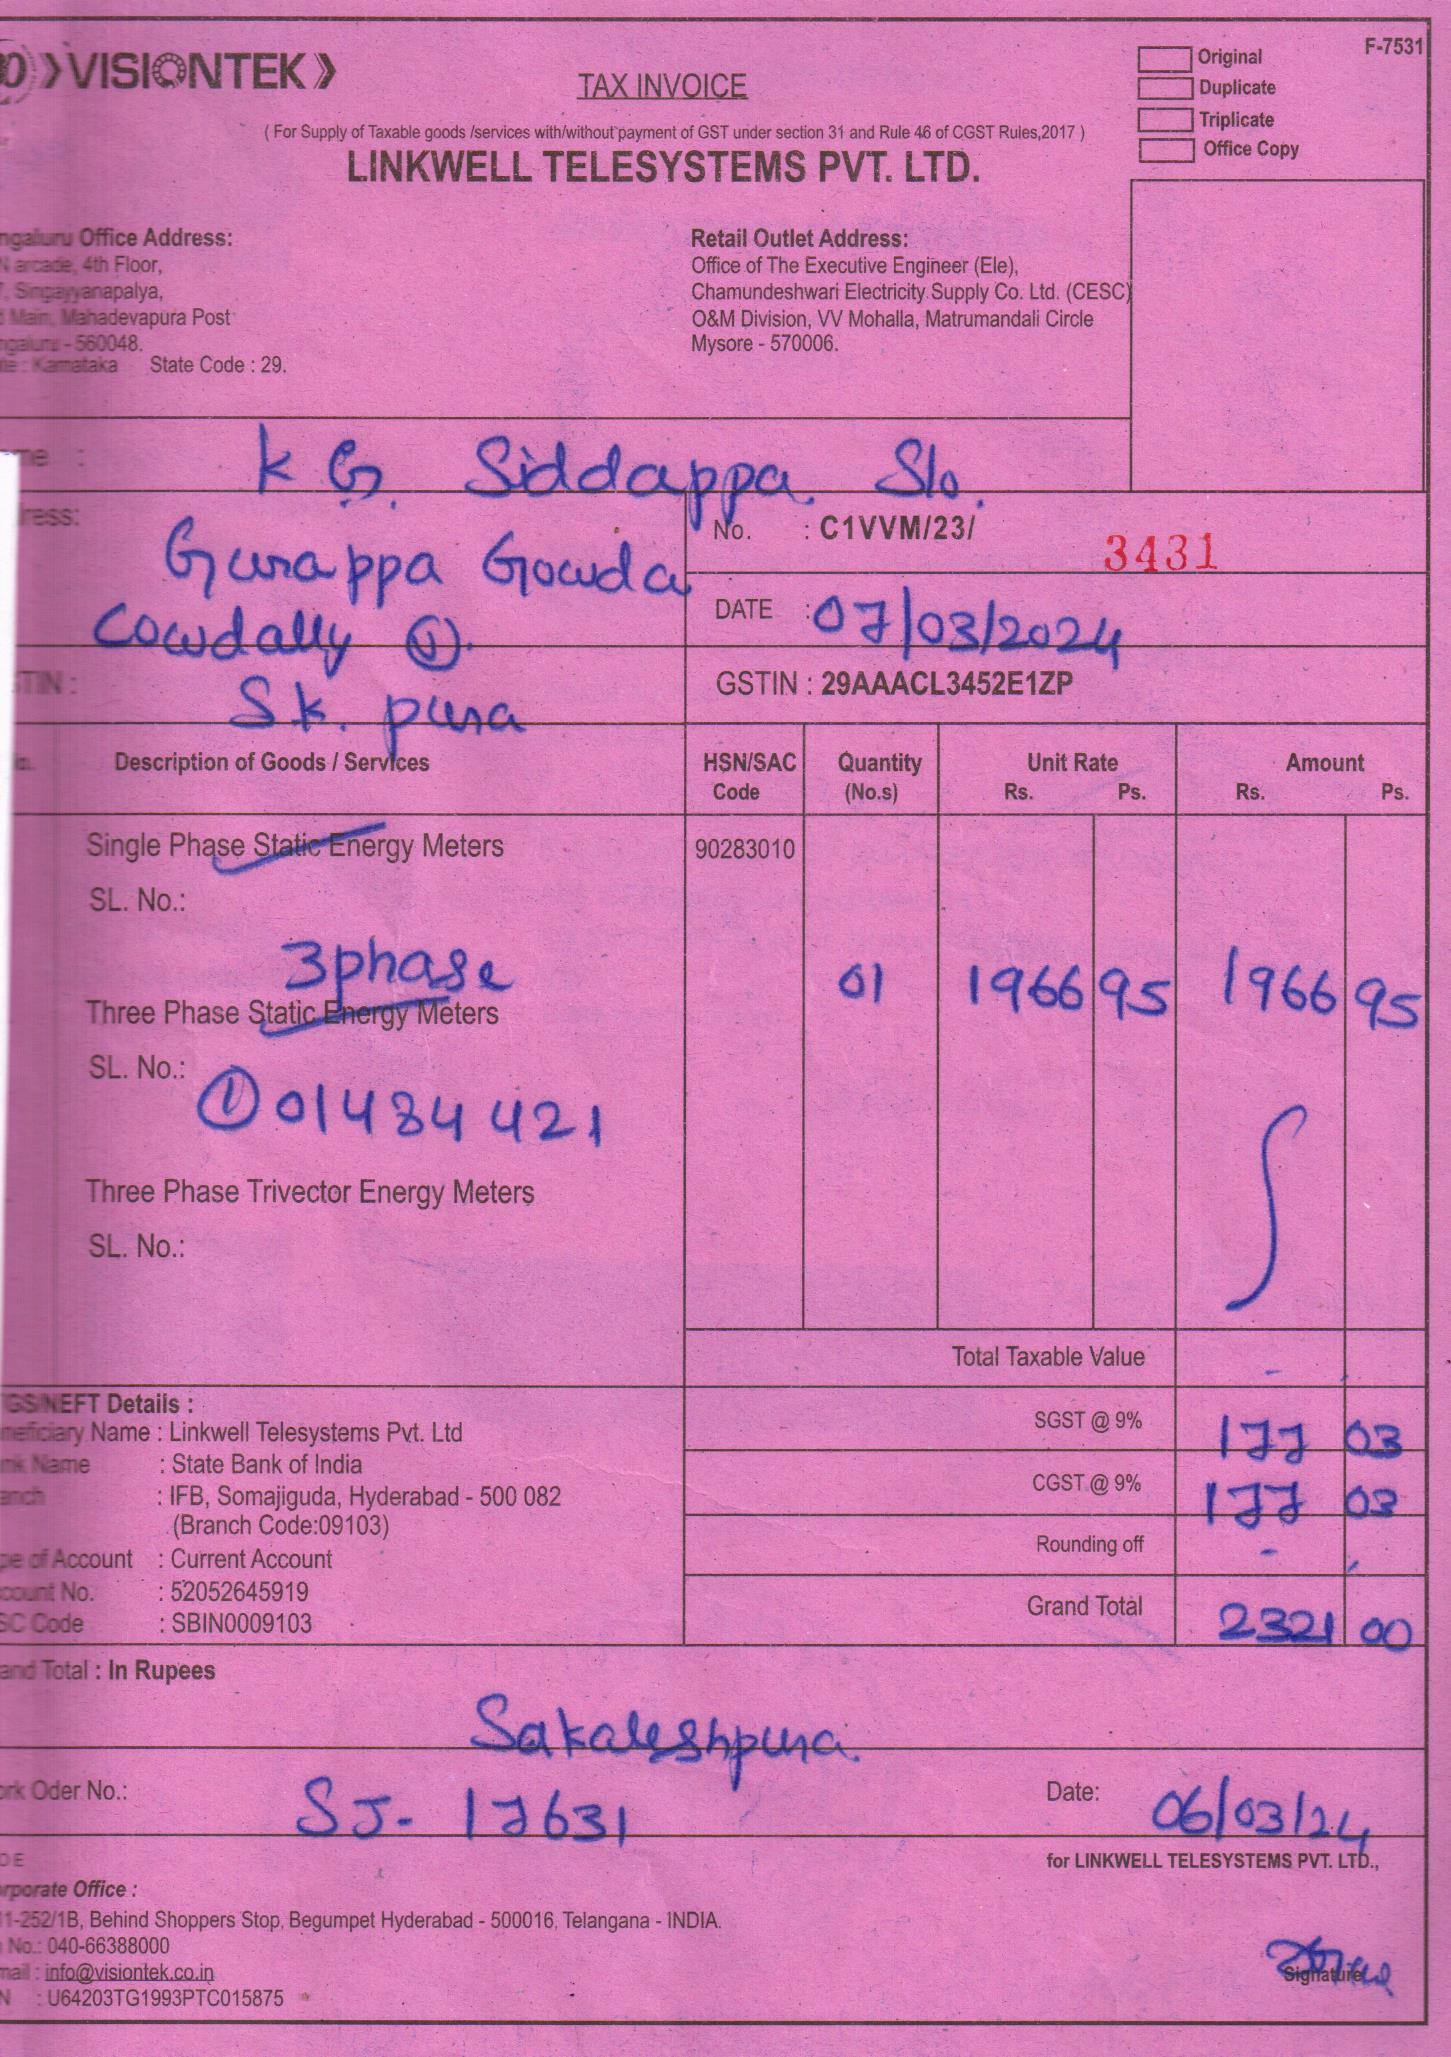 VISIONTEK
TAX INVOICE
F-7531
Original
Duplicate
Triplicate
Office Copy
( For Supply of Taxable goods /services with/without payment of GST under section 31 and Rule 46 of CGST Rules,2017 )
LINKWELL TELESYSTEMS PVT. LTD.
ngaluru Office Address:
N arcade, 4th Floor,
7, Singayyanapalya,
Main, Mahadevapura Post
ngaluru - 560048.
Karnataka State Code : 29.
Retail Outlet Address:
Office of The Executive Engineer (Ele),
Chamundeshwari Electricity Supply Co. Ltd. (CESC)
O&M Division, VV Mohalla, Matrumandali Circle
Mysore - 570006.
me : K G. Siddappa. S/o.
ress: Gurappa Gowda
Cowdally (V).
Sk. pura
No. : C1VVM/23/ 3431
DATE : 07/03/2024
TIN :
GSTIN : 29AAACL3452E1ZP
Description of Goods / Services HSN/SAC Code Quantity (No.s) Unit Rate Rs. Ps. Amount Rs. Ps.
Single Phase Static Energy Meters 90283010
SL. No.:
3phase 01 1966 95 1966 95
Three Phase Static Energy Meters
SL. No.:
① 01484421
Three Phase Trivector Energy Meters
SL. No.:
Total Taxable Value -
SGST @ 9% 177 03
CGST @ 9% 177 03
Rounding off -
Grand Total 2321 00
GS/NEFT Details :
neficiary Name : Linkwell Telesystems Pvt. Ltd
nk Name : State Bank of India
anch : IFB, Somajiguda, Hyderabad - 500 082
(Branch Code:09103)
pe of Account : Current Account
count No. : 52052645919
SC Code : SBIN0009103
and Total : In Rupees
Sakaleshpura.
ork Oder No.: SJ- 17631 Date: 06/03/24
DE
for LINKWELL TELESYSTEMS PVT. LTD.,
rporate Office :
11-252/1B, Behind Shoppers Stop, Begumpet Hyderabad - 500016, Telangana - INDIA.
No.: 040-66388000
mail : info@visiontek.co.in
N : U64203TG1993PTC015875
Signature